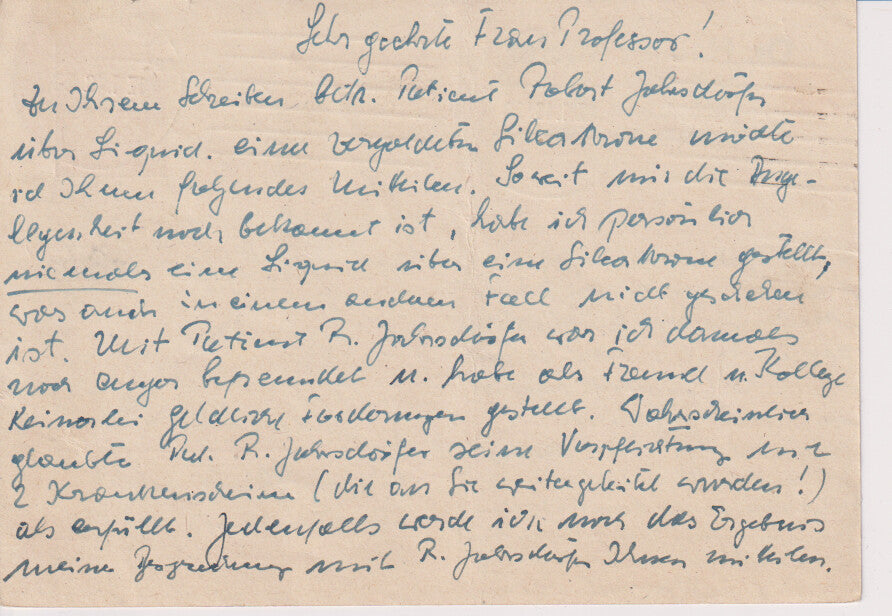 Sehr geehrte Frau Professor!
Zu Ihrem Schreiben betr. Patient Robert Jahrsdörfer
über Liquid. eine vergoldeten Silkatkrone möchte
ich Ihnen folgendes mitteilen. Soweit mir die Ange-
legenheit noch bekannt ist, habe ich persönlich
niemals eine Liquid über eine Silkatkrone gestellt,
was auch in einem anderen Fall nicht geschehen
ist. Mit Patient R. Jahrsdörfer war ich damals
noch enger befreundet u. habe als Freund u. Kollege
keinerlei geldliche Forderungen gestellt. Wahrscheinlich
glaubte Pat. R. Jahrsdörfer seine Verpflichtung mit
2 Krankenscheine (die an Sie weitergeleitet wurden!)
als erfüllt. Jedenfalls werde ich noch das Ergebnis
meine Besprechung mit R. Jahrsdörfer Ihnen mitteilen.